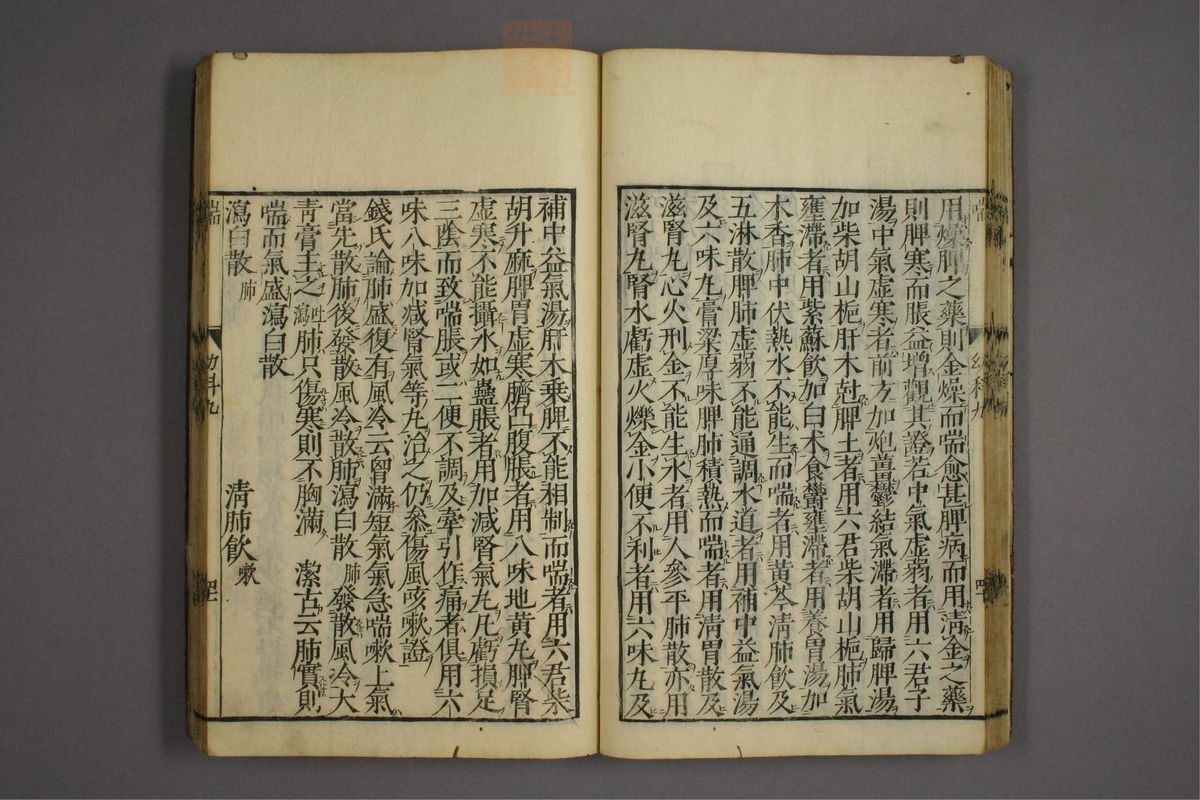 用燥脾之藥則金燥而喘愈甚脾病而用淸金之藥
則脾寒而脹益增觀其證若中氣虛弱者用六君子
湯中氣虛寒者前方加炮薑鬱結氣滯者用歸脾湯
加柴胡山梔肝木尅脾土者用六君柴胡山梔肺氣
壅滯者用紫蘇飮加白术食鬱壅滯者用養胃湯加
木香肺中伏熱水不能生而喘者用黃芩淸肺飮及
五淋散脾肺虛弱不能通調水道者用補中益氣湯
及六味丸膏粱厚味脾肺積熱而喘者用淸胃散及
滋腎丸心火刑金不能生水者用人參平肺散亦用
滋腎丸腎水虧虛火爍金小便不利者用六味丸及
補中益氣湯肝木乘脾不能相制而喘者用六君柴
胡升麻脾胃虛寒臍凸腹脹者用八味地黃丸脾腎
虛寒不能攝水如蠱脹者用加減腎氣丸凡虧損足
三陰而致喘脹或二便不調及牽引作痛者俱用六
味八味加減腎氣等丸治之仍參傷風咳嗽證
錢氏論肺盛復有風冷云胷滿短氣氣急喘嗽上氣
當先散肺後發散風冷散肺瀉白散 肺 發散風冷大
靑膏主之 吐瀉 肺只傷寒則不胸滿 潔古云肺實則
喘而氣盛瀉白散
瀉白散 肺 淸肺飮 嗽
喘 幼科九 四二
喘 幼科九